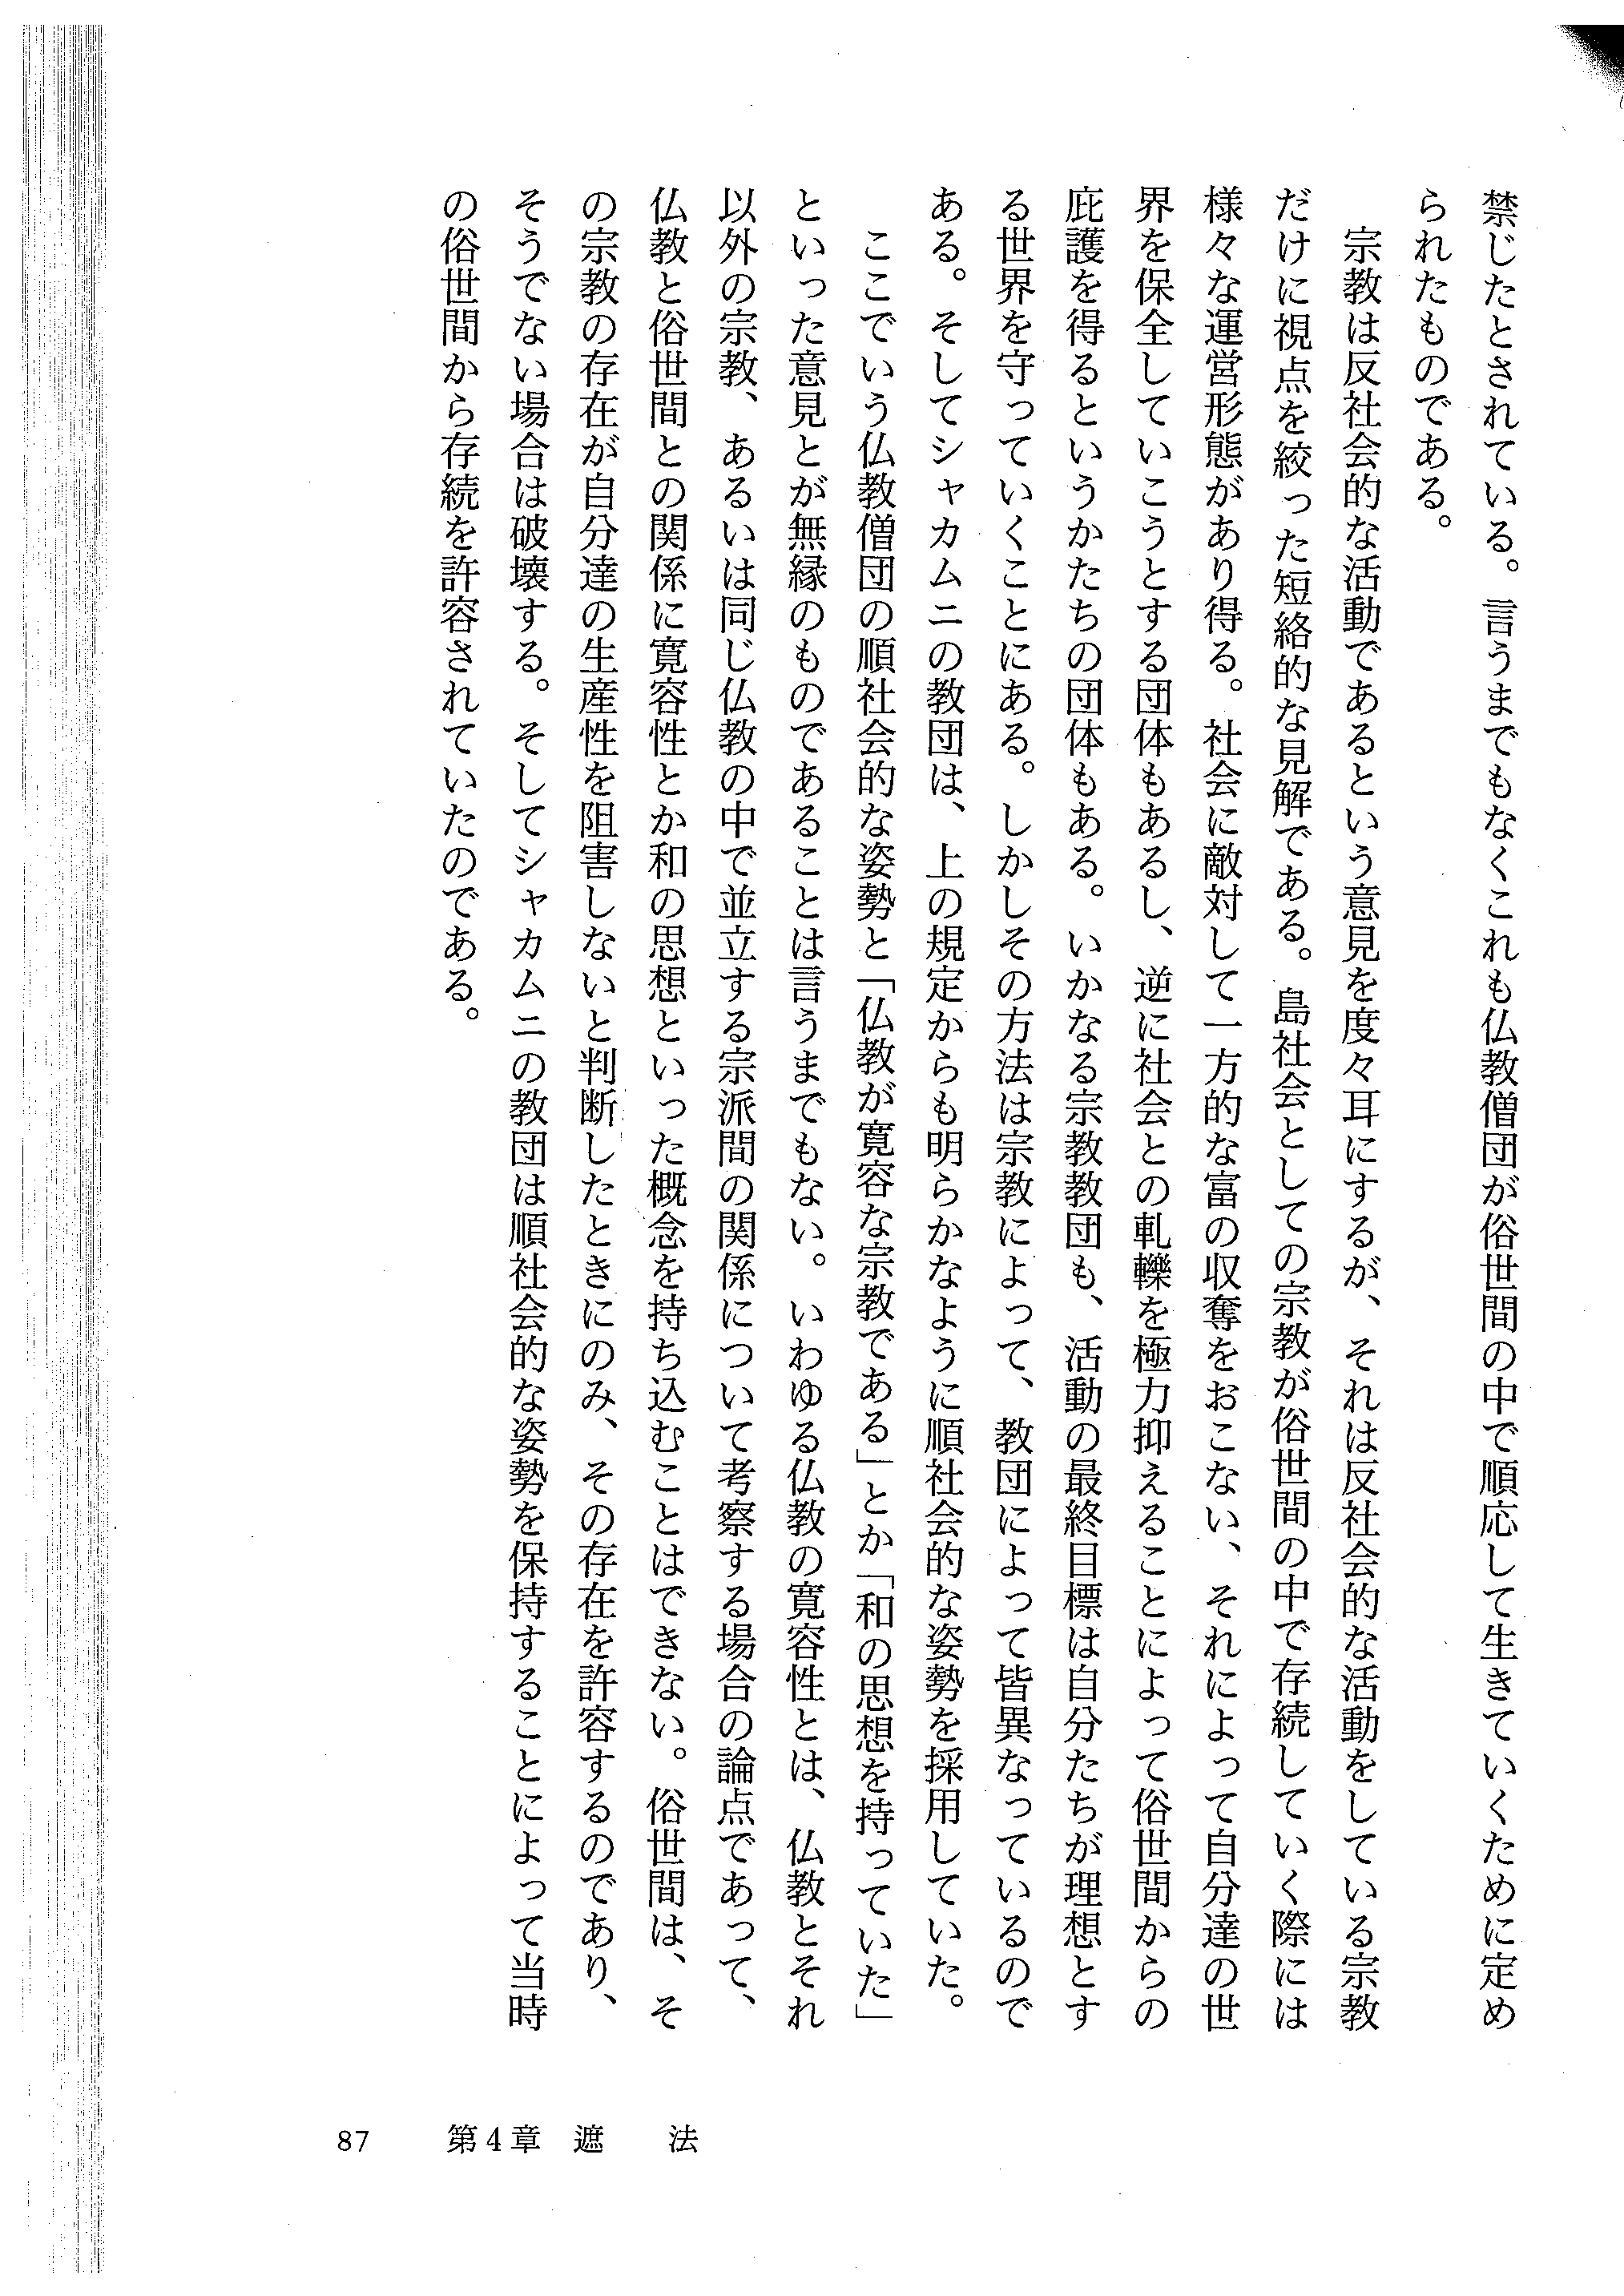 禁じたとされている。言うまでもなくこれも仏教僧団が俗世間の中で順応して生きていくために定め
られたものである。
宗教は反社会的な活動であるという意見を度々耳にするが、それは反社会的な活動をしている宗教
だけに視点を絞った短絡的な見解である。島社会としての宗教が俗世間の中で存続していく際には
様々な運営形態があり得る。社会に敵対して一方的な富の収奪をおこない、それによって自分達の世
界を保全していこうとする団体もあるし、逆に社会との軋轢を極力抑えることによって俗世間からの
庇護を得るというかたちの団体もある。いかなる宗教教団も、活動の最終目標は自分たちが理想とす
る世界を守っていくことにある。しかしその方法は宗教によって、教団によって皆異なっているので
ある。そしてシャカムニの教団は、上の規定からも明らかなように順社会的な姿勢を採用していた。
ここでいう仏教僧団の順社会的な姿勢と「仏教が寛容な宗教である」とか「和の思想を持っていた」
といった意見とが無縁のものであることは言うまでもない。いわゆる仏教の寛容性とは、仏教とそれ
以外の宗教、あるいは同じ仏教の中で並立する宗派間の関係について考察する場合の論点であって、
仏教と俗世間との関係に寛容性とか和の思想といった概念を持ち込むことはできない。俗世間は、そ
の宗教の存在が自分達の生産性を阻害しないと判断したときにのみ、その存在を許容するのであり、
そうでない場合は破壊する。そしてシャカムニの教団は順社会的な姿勢を保持することによって当時
の俗世間から存続を許容されていたのである。
87 第4章 遮 法